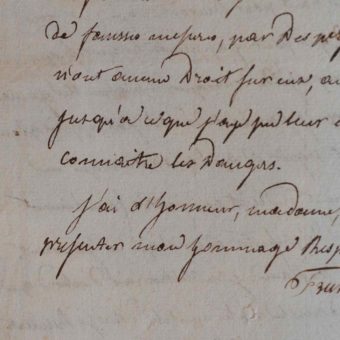 de fausses mesures, par des pe
n'ont aucun Droit sur eux, a
jusqu'à ce que j'aye pu leur
connaitre les Dangers.
j'ai l'honneur, madame,
presenter mon hommage Resp